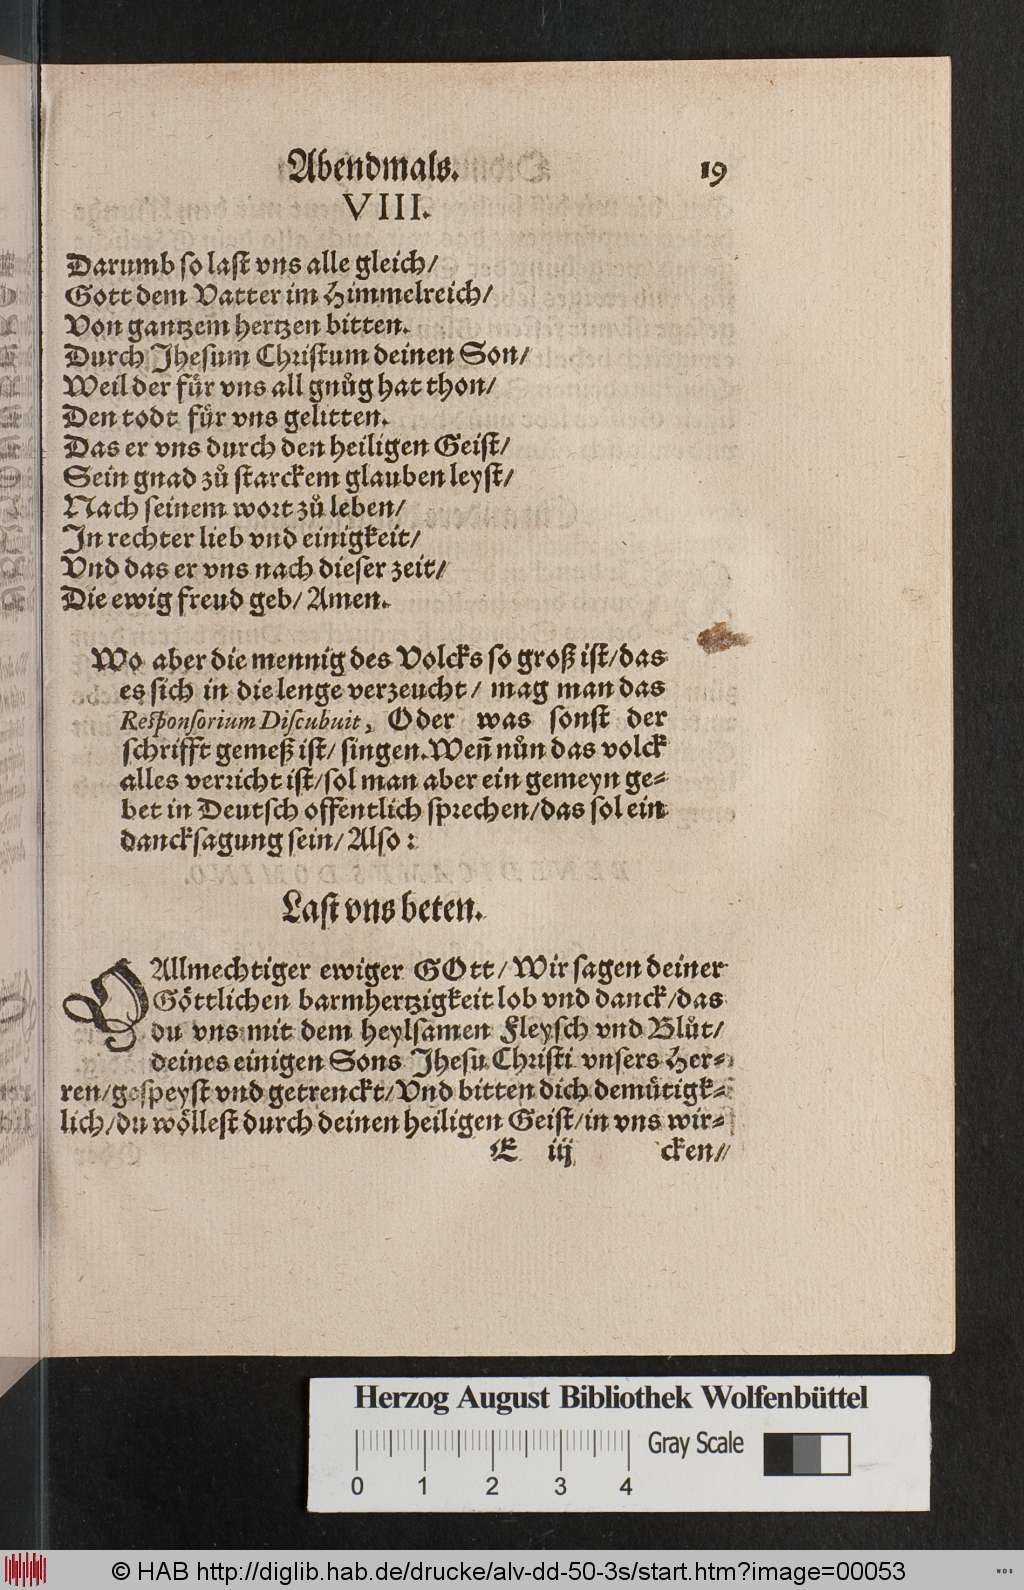 Abendmals. 19
VIII.
Darumb so last vns alle gleich/
Gott dem Vatter im Himmelreich/
Von gantzem hertzen bitten.
Durch Jhesum Christum deinen Son/
Weil der fuͤr vns all gnuͦg hat thon/
Den todt fuͤr vns gelitten.
Das er vns durch den heiligen Geist/
Sein gnad zuͦ starckem glauben leyst/
Nach seinem wort zuͦ leben/
In rechter lieb vnd einigkeit/
Vnd das er vns nach dieser zeit/
Die ewig freud geb/ Amen.
Wo aber die mennig des Volcks so groß ist/das
es sich in die lenge verzeucht/ mag man das
Responsorium Discubuit, Oder was sonst der
schrifft gemeß ist/ singen. Weñ nuͦn das volck
alles verricht ist/sol man aber ein gemeyn ge-
bet in Deutsch offentlich sprechen/das sol ein
dancksagung sein/ Also:
Last vns beten.
O Allmechtiger ewiger GOtt/ Wir sagen deiner
Goͤttlichen barmhertzigkeit lob vnd danck/das
du vns mit dem heylsamen Fleysch vnd Bluͦt/
deines einigen Sons Jhesu Christi vnsers Her-
ren/gespeyst vnd getrenckt/Vnd bitten dich demuͤtigk-
lich/du woͤllest durch deinen heiligen Geist/in vns wir-
E iij cken/
Herzog August Bibliothek Wolfenbüttel
Gray Scale
0 1 2 3 4
© HAB http://diglib.hab.de/drucke/alv-dd-50-3s/start.htm?image=00053